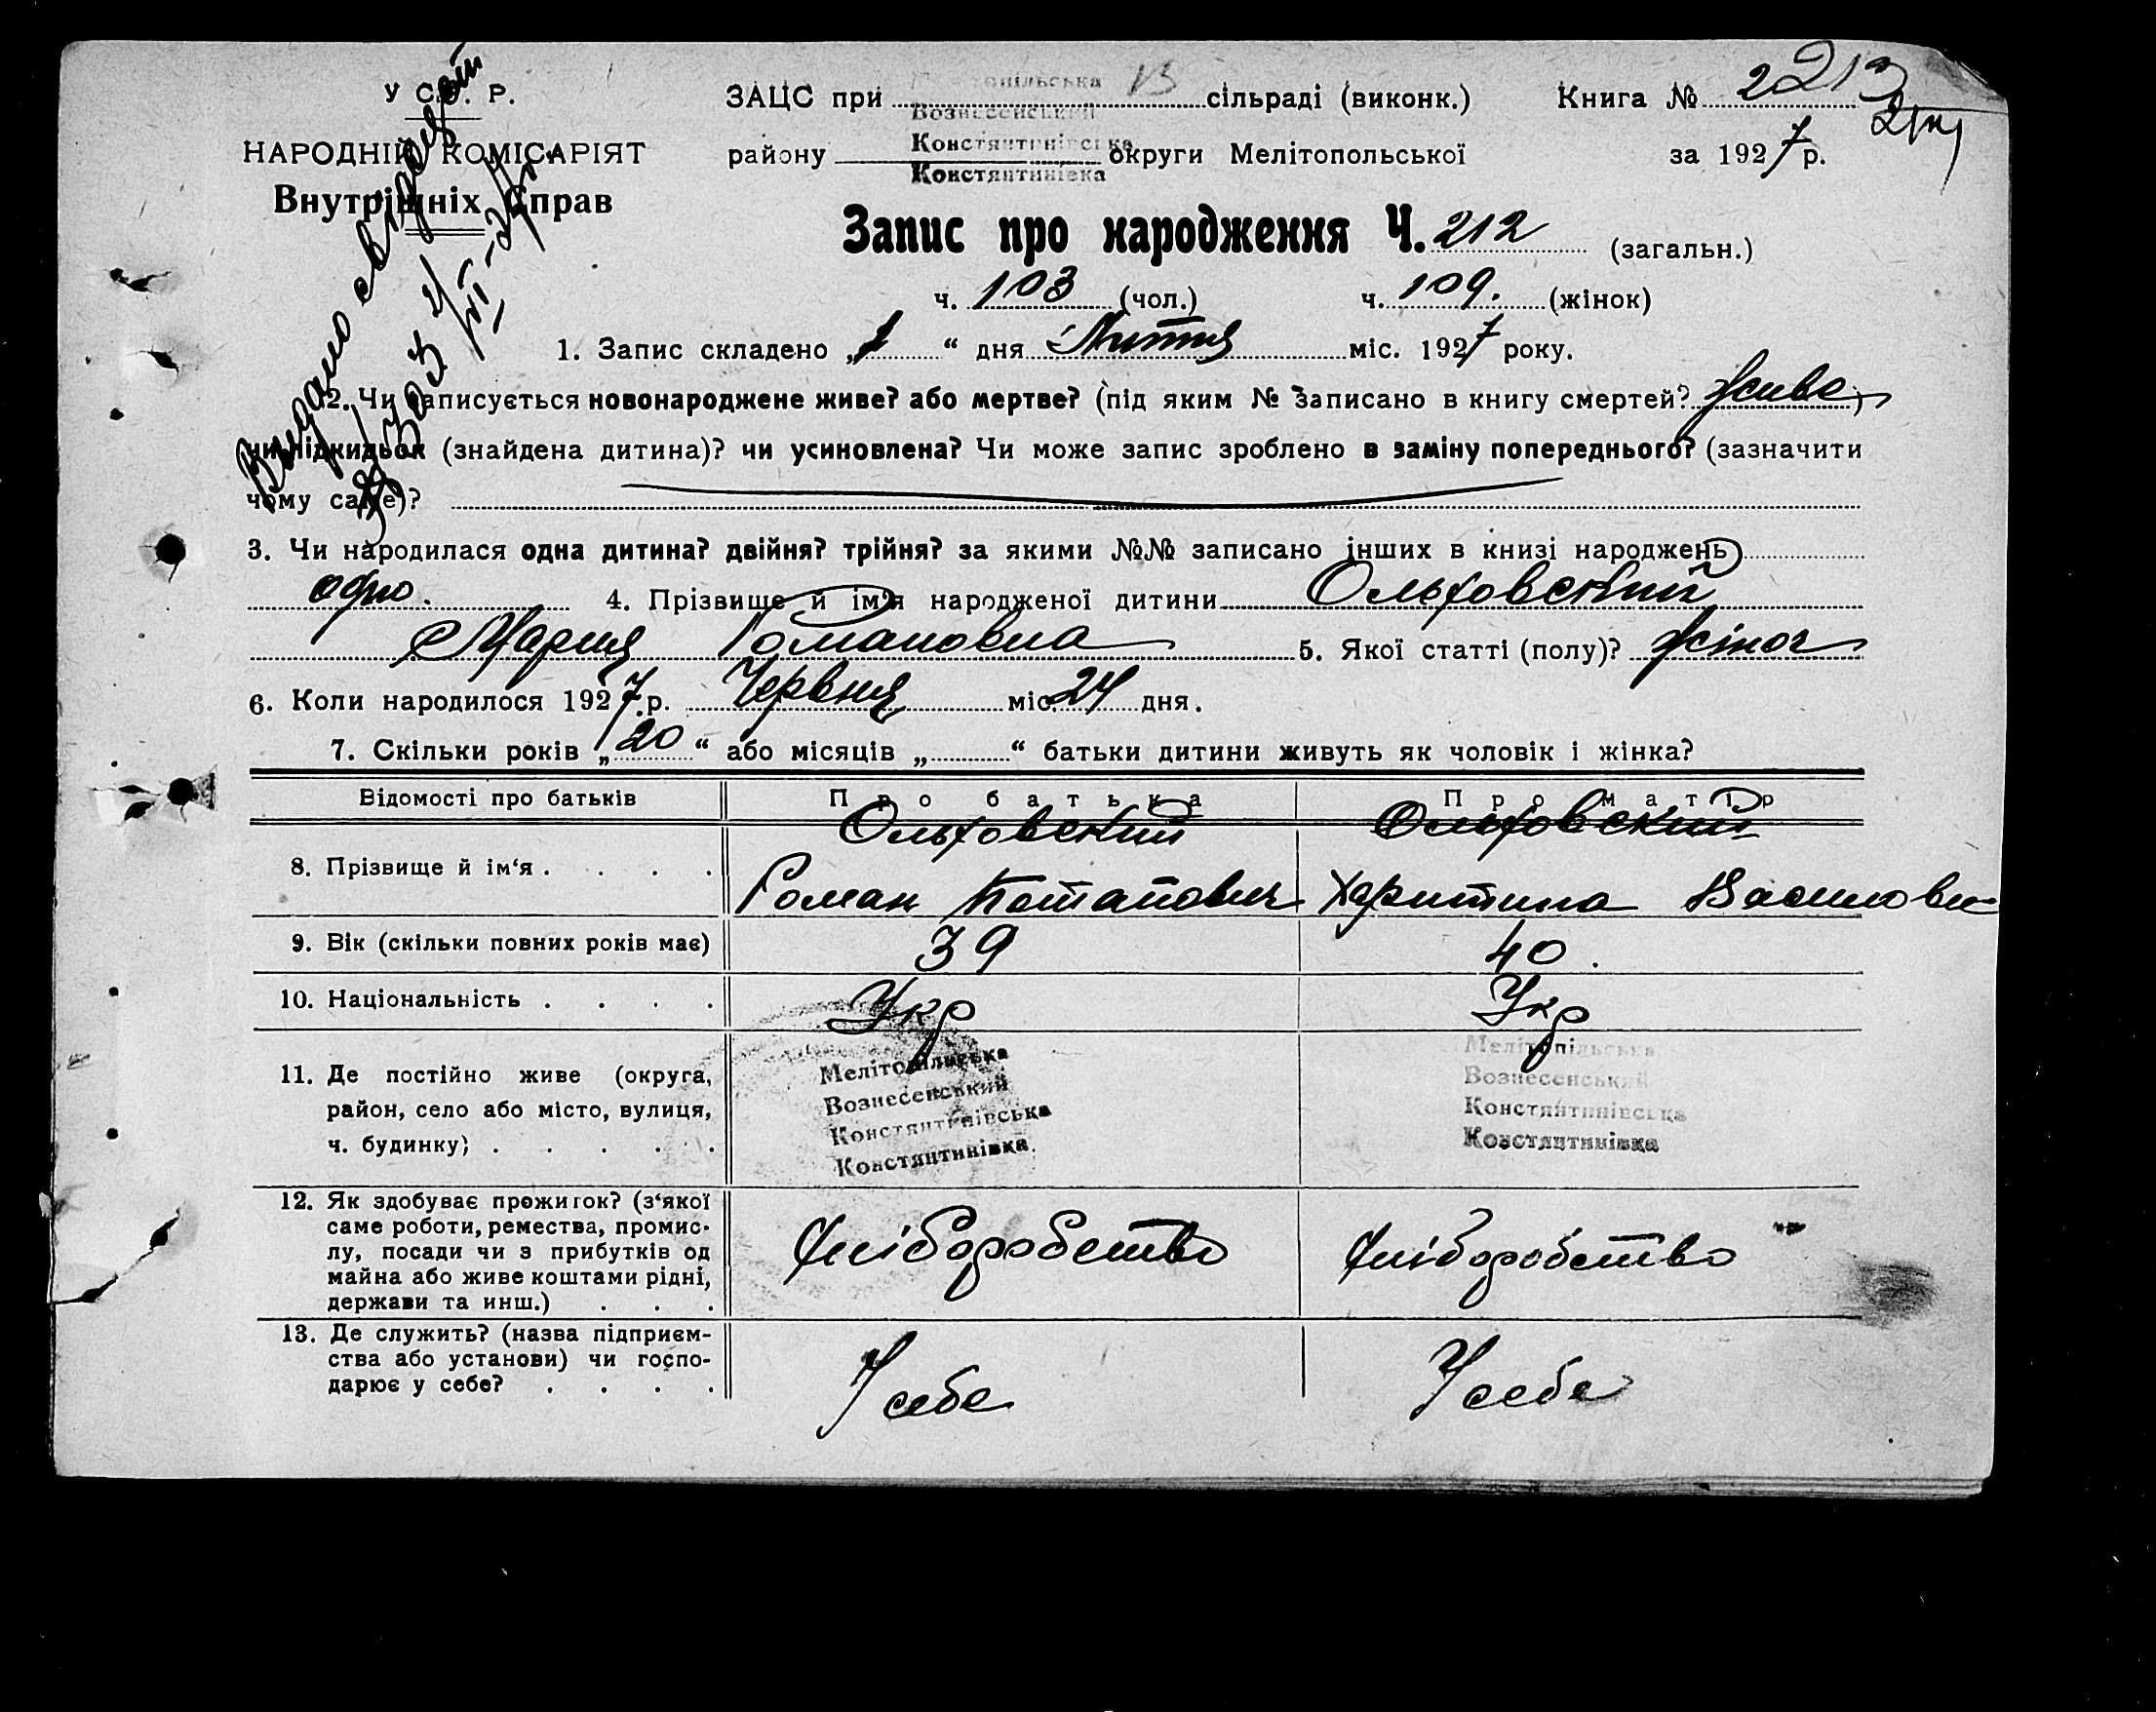 У С. Р. Р.
НАРОДНІЙ КОМІСАРІЯТ
Внутрішніх Справ
Видано
ЗАЦС при сільраді (виконк.) Книга № 2 213
Вознесенський
Констянтинівська
району округи Мелітопольської за 1927 р.
Констянтинівка
Запис про народження Ч. 212 (загальн.)
ч. 103 (чол.) ч. 109. (жінок)
1. Запис складено „1“ дня Липня міс. 1927 року.
2. Чи записується новонароджене живе? або мертве? (під яким № записано в книгу смертей? живе)
чи підкидьок (знайдена дитина)? чи усиновлена? Чи може запис зроблено в заміну попереднього? (зазначити
чому саме)?
3. Чи народилася одна дитина? двійня? трійня? за якими №№ записано інших в книзі народжень
одно. 4. Прізвище й ім'я народженої дитини Ольховский
Мария Романовна 5. Якої статті (полу)? жіноч
6. Коли народилося 1927 р. Червня міс. 24 дня.
7. Скільки років „20“ або місяців „ “ батьки дитини живуть як чоловік і жінка?
Відомості про батьків Про батька Про матір
8. Прізвище й ім‘я . . . . Ольховский Ольховский
Роман Потапович Харитина Василовн
9. Вік (скільки повних років має) 39 40.
10. Національність . . . . Укр Укр
11. Де постійно живе (округа,
район, село або місто, вулиця,
ч. будинку) . . . . .
Мелітопільська
Вознесенський
Констянтинівська
Констянтинівка
Мелітопільська
Вознесенський
Констянтинівська
Констянтинівка
12. Як здобуває прожиток? (з‘якої
саме роботи, ремества, промис-
лу, посади чи з прибутків од
майна або живе коштами рідні,
держави та инш.) . . .
Хліборобство Хліборобство
13. Де служить? (назва підприєм-
ства або установи) чи госпо-
дарює у себе? . . . .
У себе У себе